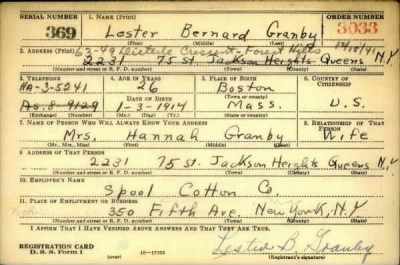 SERIAL NUMBER
1. NAME (Print)
ORDER NUMBER
369
Lester Bernard Granby
3033
(First) (Middle) (Last)
2. ADDRESS (Print)
63-49 Crescent - Forest Hills 12/18/41
2231 75 St. Jackson Heights Queens N.Y
(Number and street or R. F. D. number) (Town) (County) (State)
3. TELEPHONE
4. AGE IN YEARS
5. PLACE OF BIRTH
6. COUNTRY OF CITIZENSHIP
HA-3-5241
26
Boston
DATE OF BIRTH
(Town or county)
1-3-1914
Mass.
U.S.
(Exchange) (Number)
(Mo.) (Day) (Yr.)
(State or country)
7. NAME OF PERSON WHO WILL ALWAYS KNOW YOUR ADDRESS
8. RELATIONSHIP OF THAT PERSON
Mrs. Hannah Granby
Wife
(Mr., Mrs., Miss) (First) (Middle) (Last)
9. ADDRESS OF THAT PERSON
2231 75 St. Jackson Heights Queens N.Y
(Number and street or R. F. D. number) (Town) (County) (State)
10. EMPLOYER'S NAME
Spool Cotton Co.
11. PLACE OF EMPLOYMENT OR BUSINESS
350 Fifth Ave. New York, N.Y
(Number and street or R. F. D. number) (Town) (County) (State)
I AFFIRM THAT I HAVE VERIFIED ABOVE ANSWERS AND THAT THEY ARE TRUE.
REGISTRATION CARD
D. S. S. Form 1
(over)
16-17105
Lester B. Granby
(Registrant's signature)